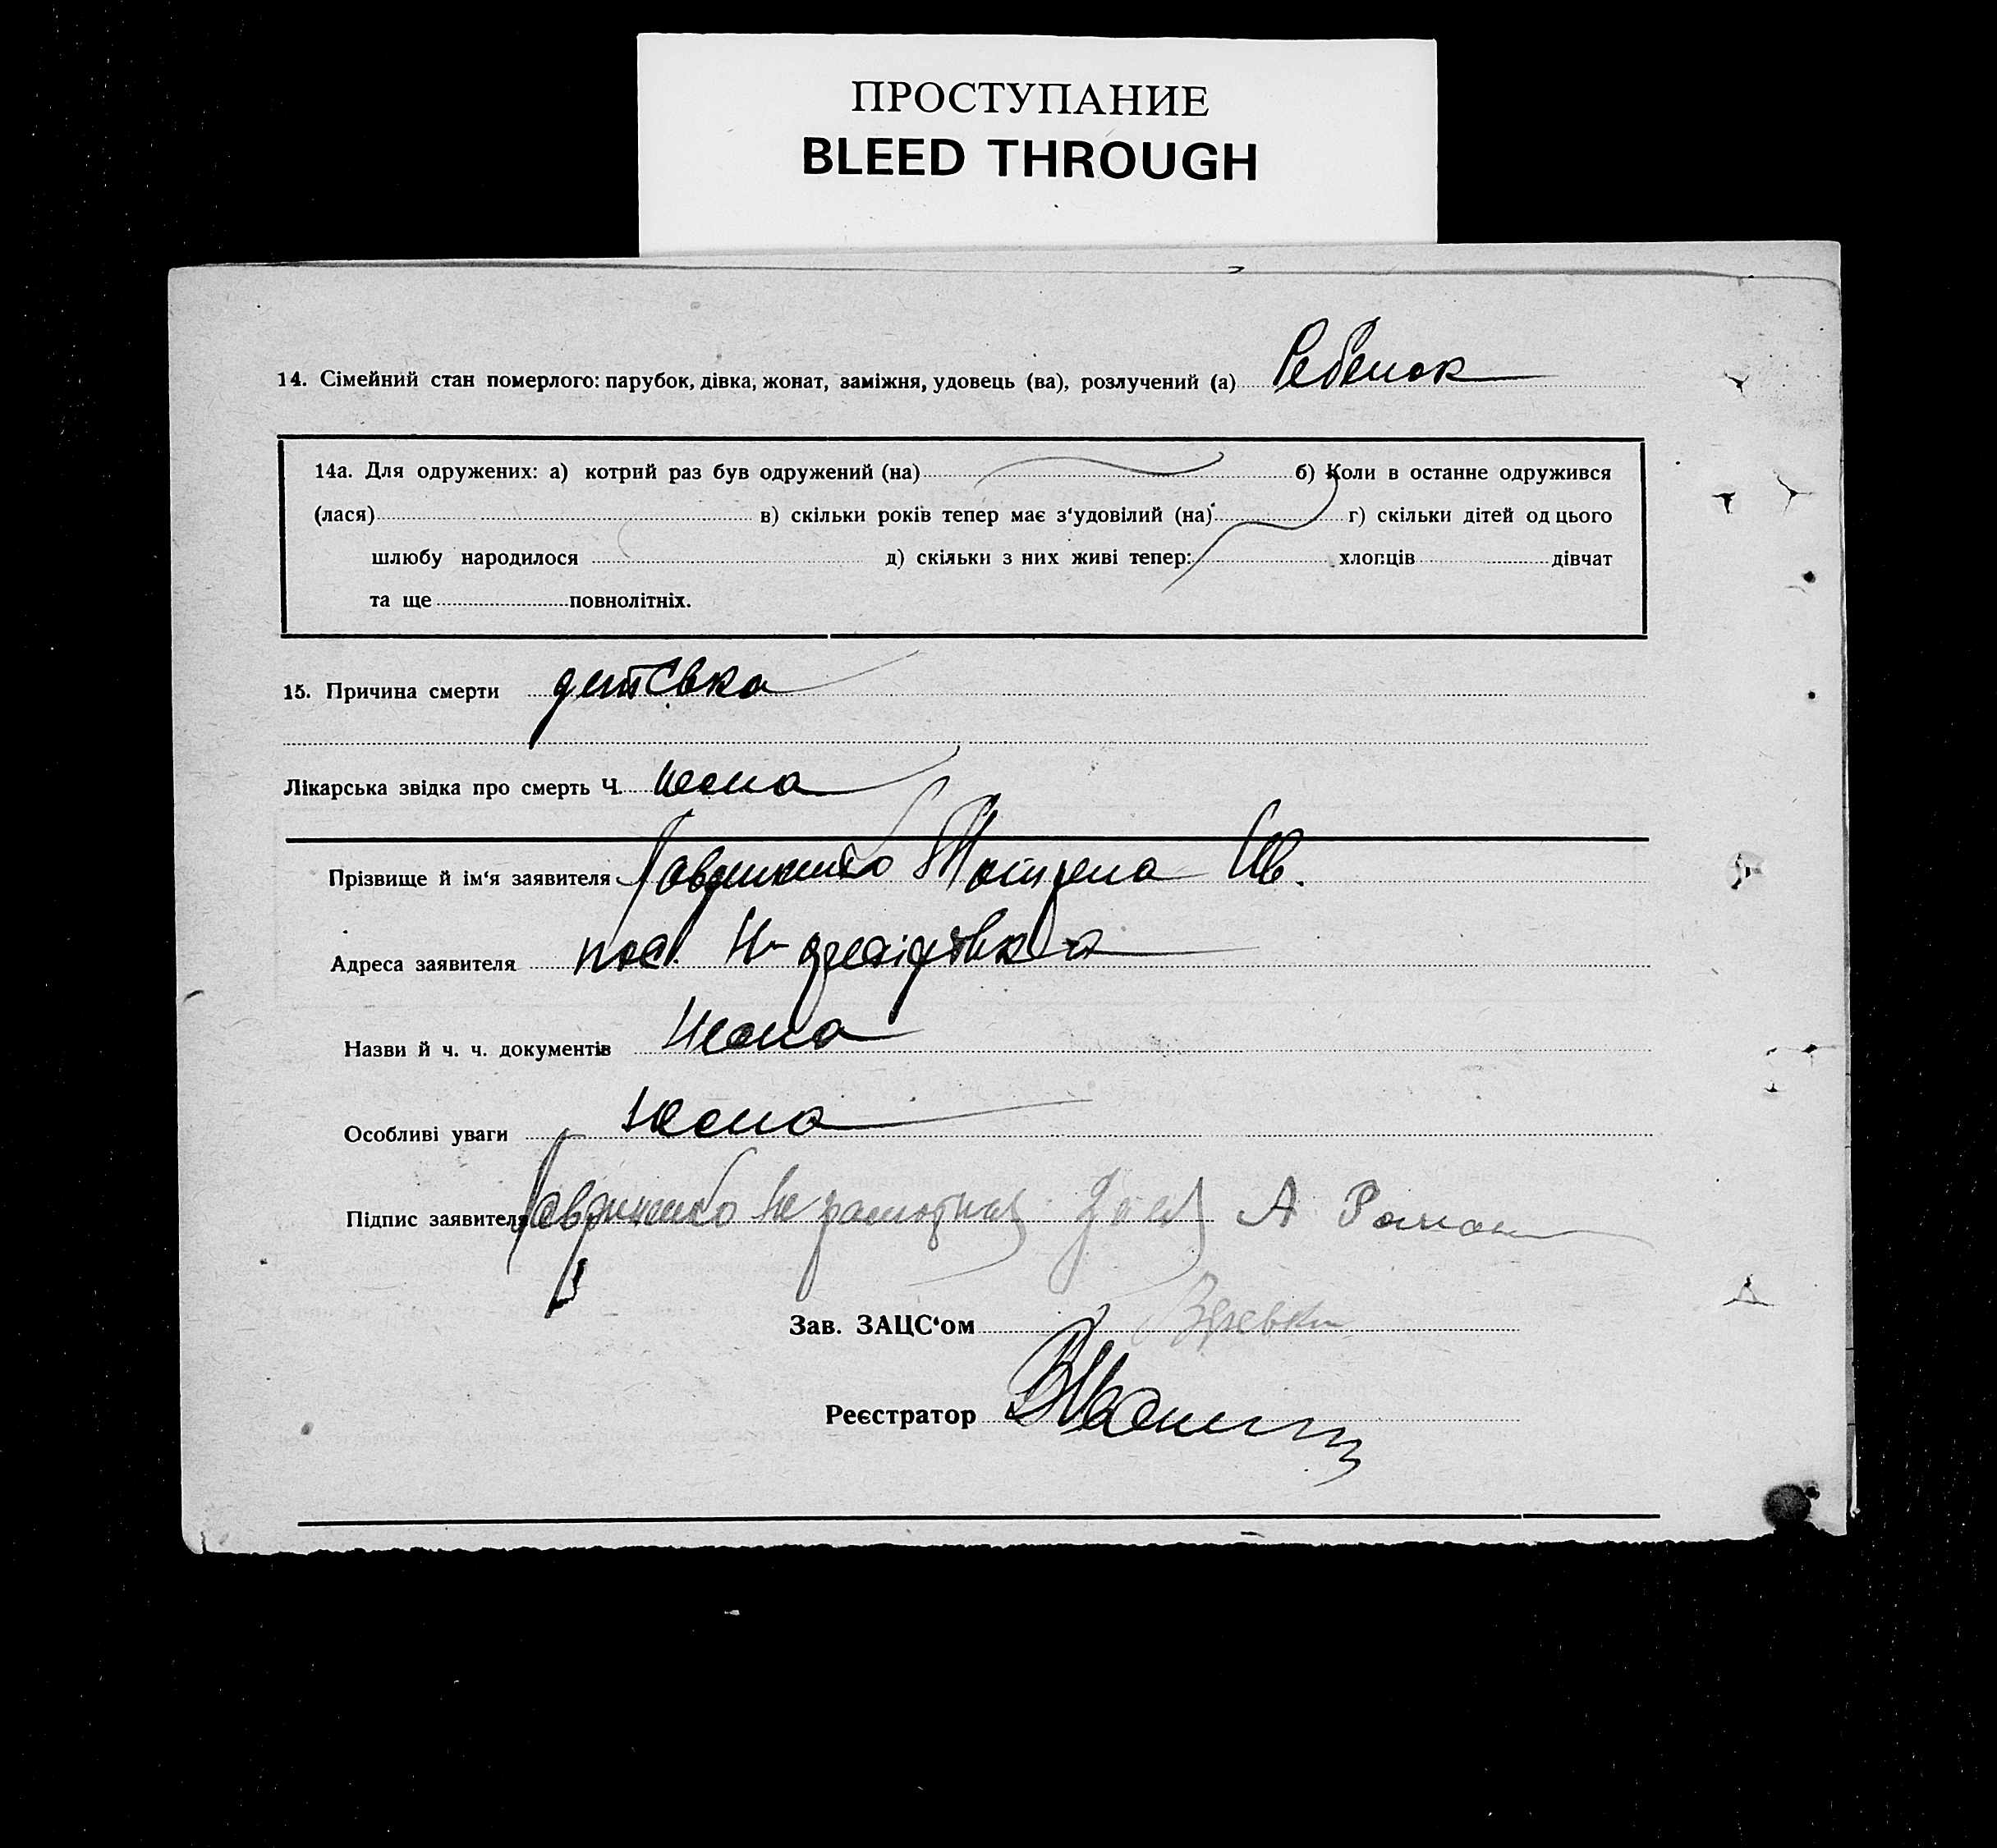 ПРОСТУПАНИЕ
BLEED THROUGH
14. Сімейний стан померлого: парубок, дівка, жонат, заміжня, удовець (ва), розлучений (а) Ребенок
14а. Для одружених: а) котрий раз був одружений (на) б) Коли в останне одружився
(лася) в) скільки років тепер має з‘удовілий (на) г) скільки дітей од цього
шлюбу народилося д) скільки з них живі тепер: хлопців дівчат
та ще повнолітніх.
15. Причина смерти
Лікарська звідка про смерть Ч. нема
Прізвище й ім‘я заявителя Ив.
Адреса заявителя пос.
Назви й ч. ч. документів Нема
Особливі уваги Нема
Підпис заявителя А Роман
Зав. ЗАЦС‘ом
Реєстратор